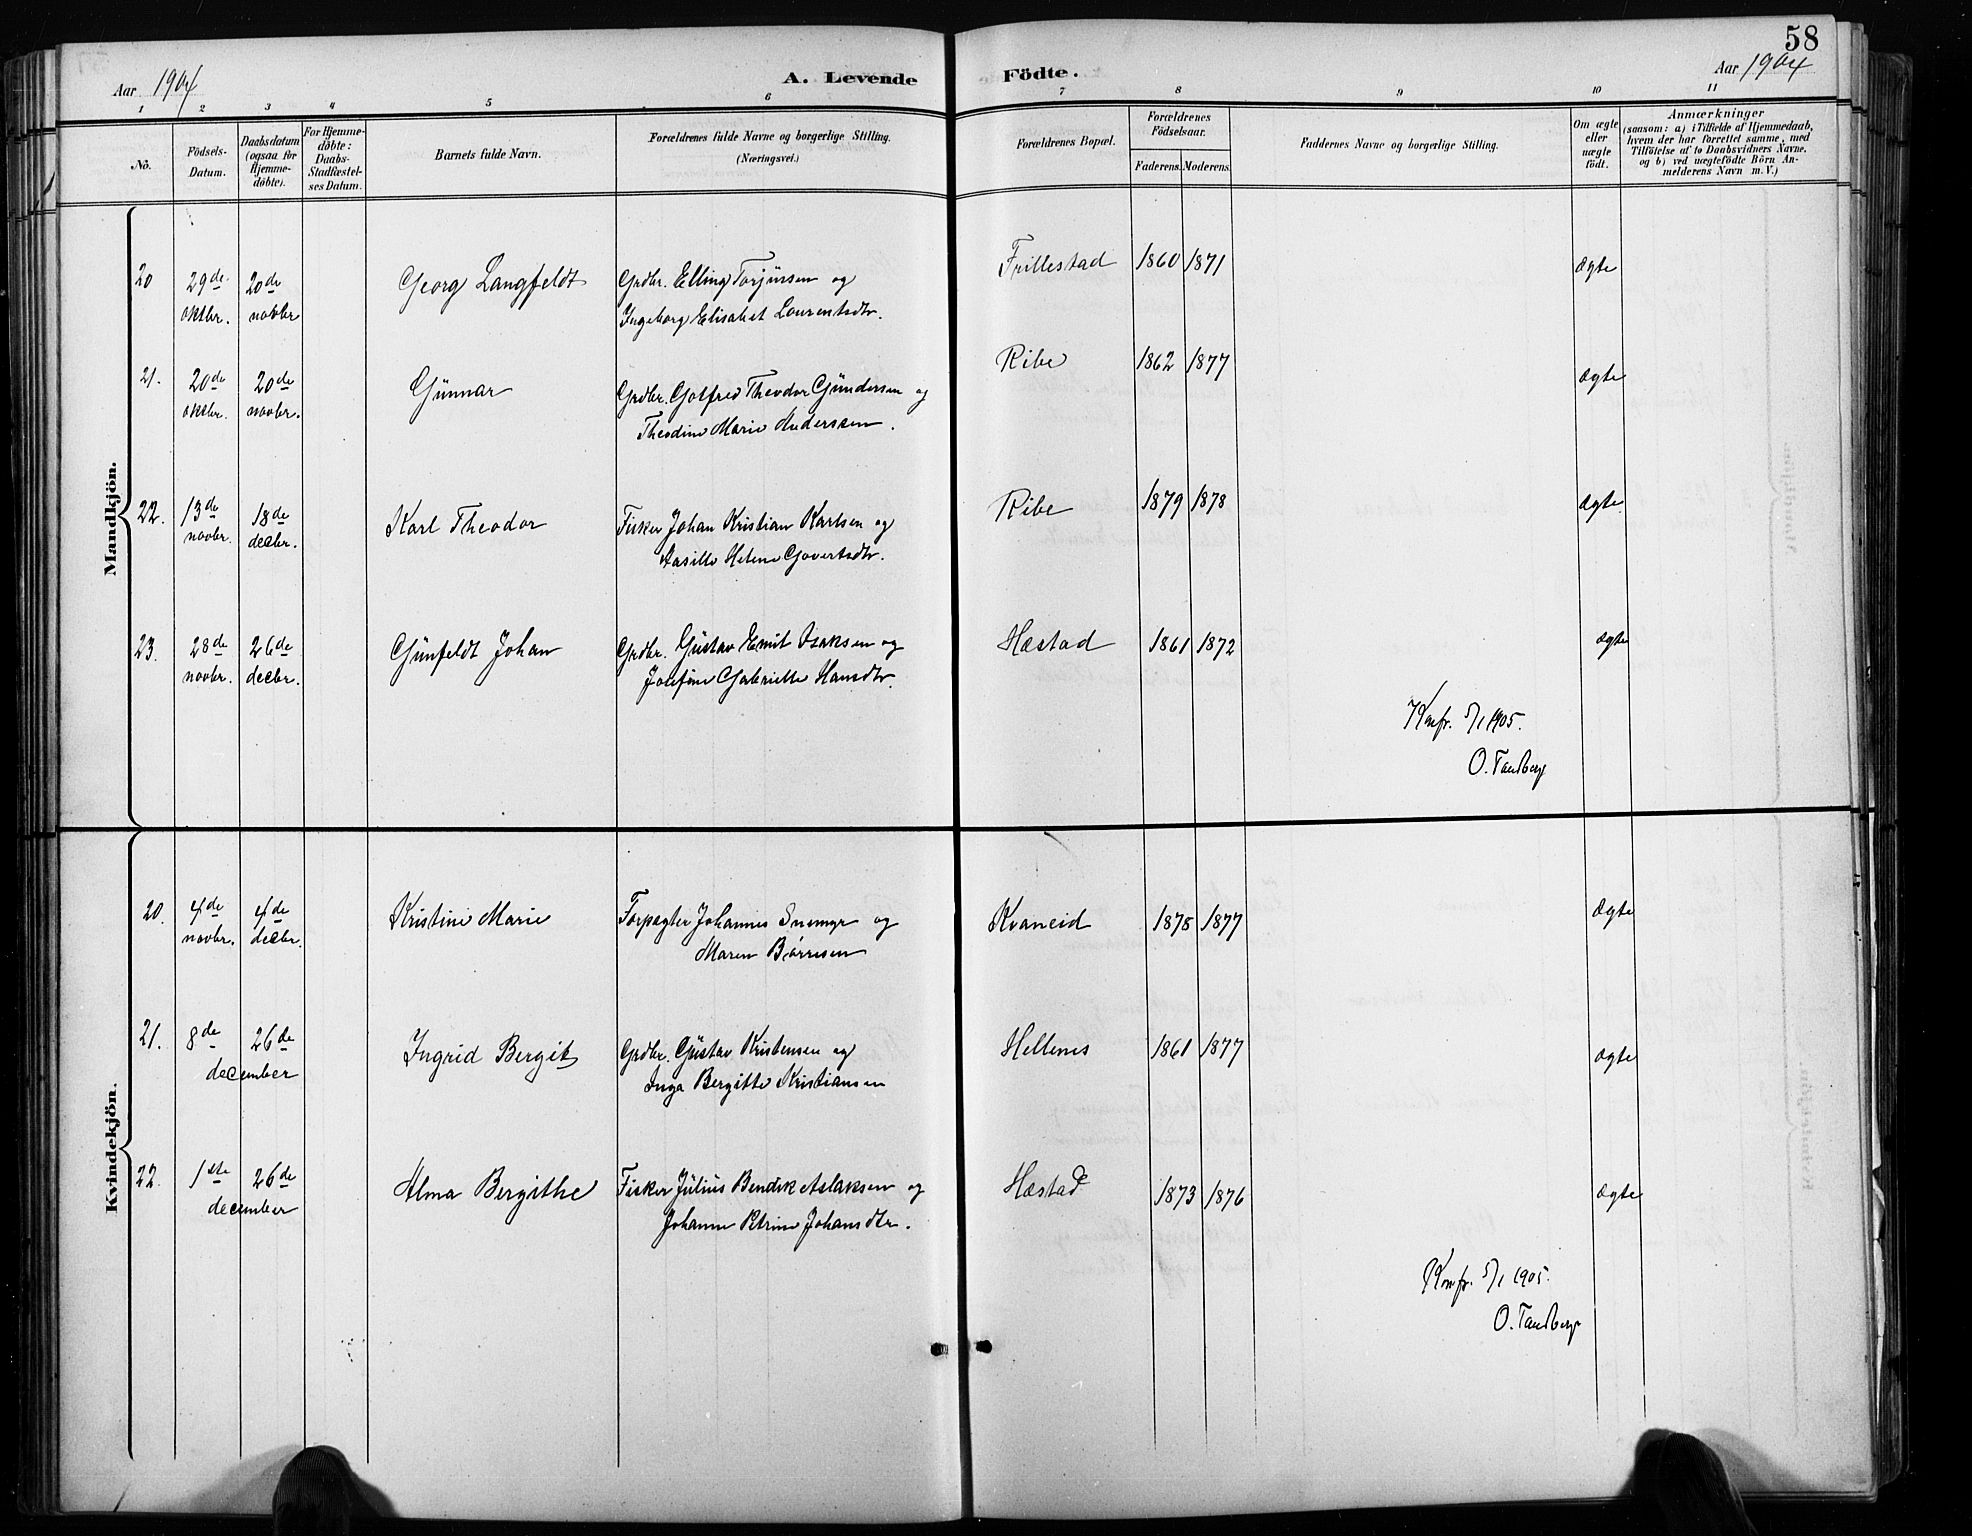 58
Aar 1904
A. Levende Födte.
Aar 1904
1 2 3 4 5 6 7 8 9 10 11
No.
Födsels-Datum.
Daabsdatum (ogsaa for Hjemme-döbte).
For Hjemme-döbte: Daabs-Stadfæstel-ses Datum.
Barnets fulde Navn.
Forældrenes fulde Navne og borgerlige Stilling.
(Næringsvei.)
Forældrenes Bopæl.
Forældrenes Födselsaar.
Faderens. Moderens.
Faddernes Navne og borgerlige Stilling.
Om ægte eller uægte födt.
Anmærkninger
(saasom: a) i Tilfælde af Hjemmedaab,
hvem der har forrettet samme, med
Tilföielse af to Daabsvidners Navne,
og b) ved uægtefödte Börn An-
melderens Navn m. V.)
Mandkjön.
20 29de oktbr. 20de novbr Georg Langfeldt Grdbr. Elling Torjussen og Frillestad 1860 1871 Ægte
Ingeborg Elisabet Laurentsdtr.
21. 20de oktbr. 20de novbr. Günnar Grdbr. Gotfred Theodor Gündersen og Ribe 1862 1877 Ægte
Theodine Marie Anderssen.
22. 13de novbr. 18de decbr. Karl Theodor Fisker Johan Kristian Karlsen og Ribe 1879 1878 Ægte
Aasille Helene Govertsdtr.
23. 28de novbr. 26de decbr. Günfeldt Johan Grdbr. Güstav Emil Isaksen og Hæstad 1861 1872 Ægte
Josefine Gabrielle Hansdtr.
Konfr. 5/1 1905.
O. Tandberg
Kvindekjön.
20. 4de novbr. 4de decbr. Kristine Marie Forpagter Johannes Snemyr og Kvaneid 1875 1877 Ægte
Maren Børresen
21. 8de 26de december Ingrid Bergit Grdbr. Güstav Kristensen og Hellenes 1861 1877 Ægte
Inga Bergitte Kristiansen
22. 1ste 26de december Alma Bergithe Fisker Jülius Bendik Aslaksen og Hæstad 1873 1876 Ægte
Johanne Petrine Johansdtr.
Konfr. 5/1 1905.
O. Tandberg